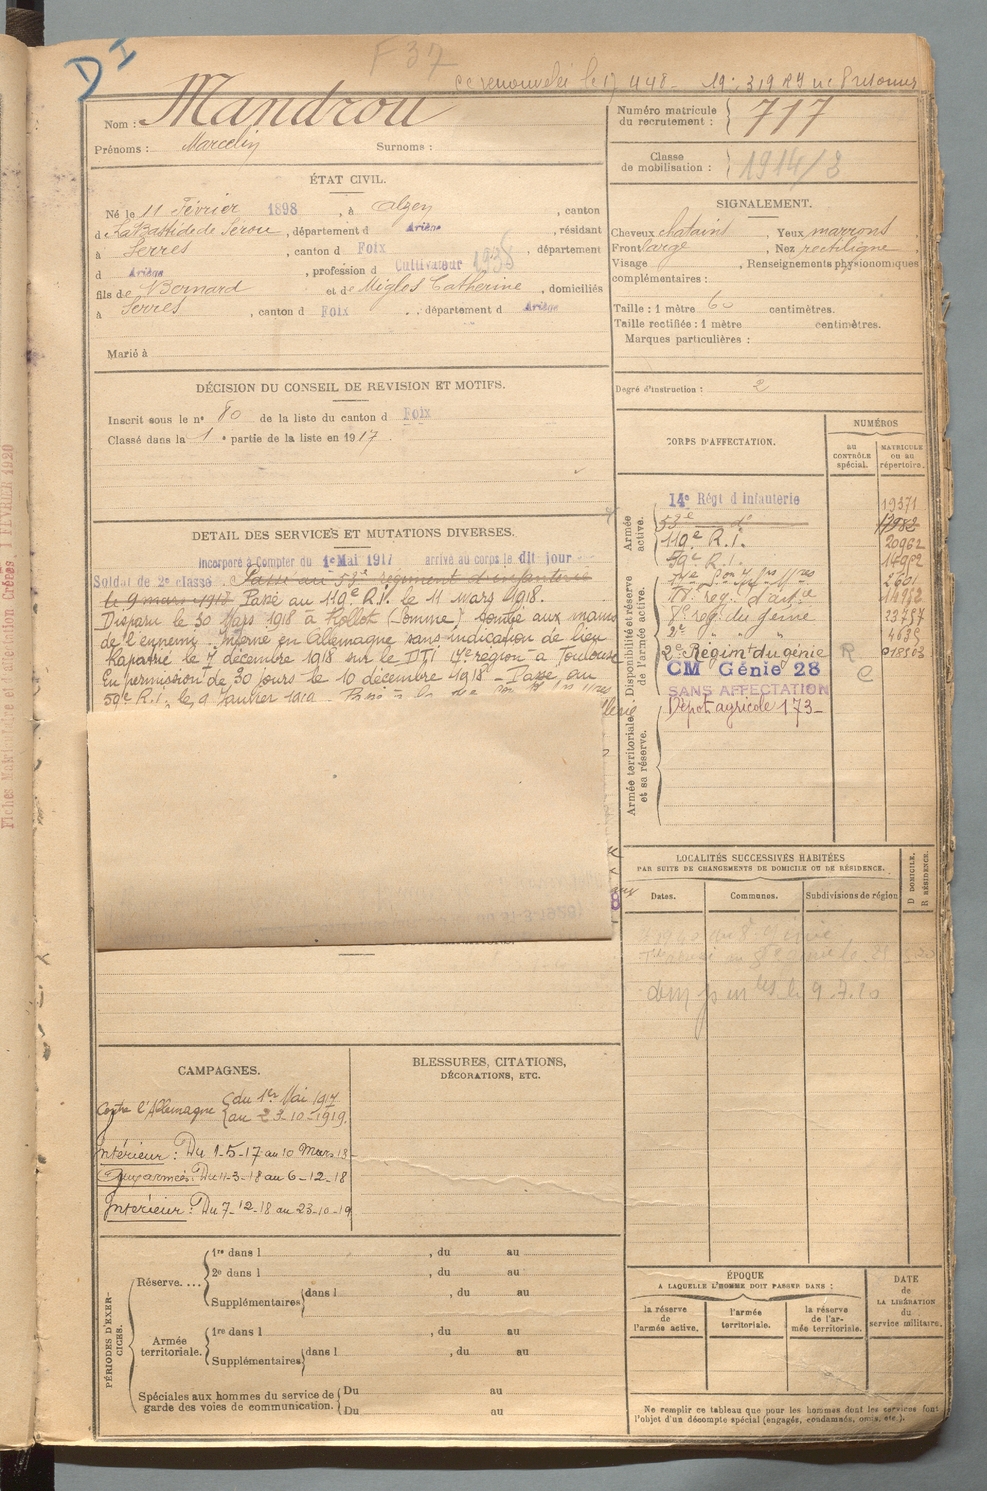 DI
F 37
Nom : Mandrou
Prénoms : Marcelin Surnoms :
Numéro matricule du recrutement : 717
Classe de mobilisation : 1914/3
ÉTAT CIVIL.
Né le 11 Février 1898, à Alzen, canton
d La Bastide de Serou, département d Ariège, résidant
à Serres, canton d Foix, département
d Ariège, profession d Cultivateur 1938
fils de Bernard et de Miglos Catherine, domiciliés
à Serres, canton d Foix, département d Ariège
Marié à
SIGNALEMENT.
Cheveux chatains, Yeux marrons
Front large, Nez rectiligne
Visage, Renseignements physionomiques
complémentaires :
Taille : 1 mètre 60 centimètres.
Taille rectifiée : 1 mètre centimètres.
Marques particulières :
Degré d'instruction : 2
DÉCISION DU CONSEIL DE REVISION ET MOTIFS.
Inscrit sous le n° 80 de la liste du canton d Foix
Classé dans la 1e partie de la liste en 1917.
DÉTAIL DES SERVICES ET MUTATIONS DIVERSES.
Incorporé à Compter du 1e Mai 1917 arrivé au corps le dit jour
Soldat de 2e classe. Passé au 53e régiment d'infanterie
le 9 mars 1918 Passé au 119e R.I. le 11 Mars 1918.
Disparu le 30 Mars 1918 à Rollot (Somme) tombé aux mains
de l'ennemi interné en Allemagne sans indication de lieu
Rapatrié le 7 décembre 1918 sur le DTI 17e région à Toulouse
En permission de 30 jours le 10 décembre 1918 - Passé au
59e R.I. le 9 Janvier 1919
CORPS D'AFFECTATION.
NUMÉROS
au CONTRÔLE spécial.
MATRICULE ou au répertoire.
Armée active.
14e Régt d Infanterie 19571
53e d°
119e R.I. 20962
59e R.I.
Disponibilité et réserve de l'armée active.
7e reg. du génie 23757
2e " " " 4639
2e Régiment du génie R 018563
CM Génie 28 C
SANS AFFECTATION
Dépot agricole 173-
Armée territoriale et sa réserve.
LOCALITÉS SUCCESSIVES HABITÉES
PAR SUITE DE CHANGEMENTS DE DOMICILE OU DE RÉSIDENCE.
Dates. Communes. Subdivisions de région
D DOMICILE. R RÉSIDENCE.
9.7.20
CAMPAGNES.
Contre l'Allemagne du 1er Mai 1917
au 23-10-1919.
Intérieur : Du 1-5-17 au 10 Mars 18
Aux armées : Du 11-3-18 au 6-12-18
Intérieur : Du 7-12-18 au 23-10-19
BLESSURES, CITATIONS,
DÉCORATIONS, ETC.
PÉRIODES D'EXERCICES.
Réserve.... 1re dans l , du au
2e dans l , du au
Supplémentaires dans l , du au
Armée territoriale. 1re dans l , du au
Supplémentaires dans l , du au
Spéciales aux hommes du service de Du au
garde des voies de communication. Du au
ÉPOQUE
A LAQUELLE L'HOMME DOIT PASSER DANS :
la réserve de l'armée active.
l'armée territoriale.
la réserve de l'armée territoriale.
DATE de LA LIBÉRATION du service militaire.
Ne remplir ce tableau que pour les hommes dont les services font
l'objet d'un décompte spécial (engagés, condamnés, omis, etc.).